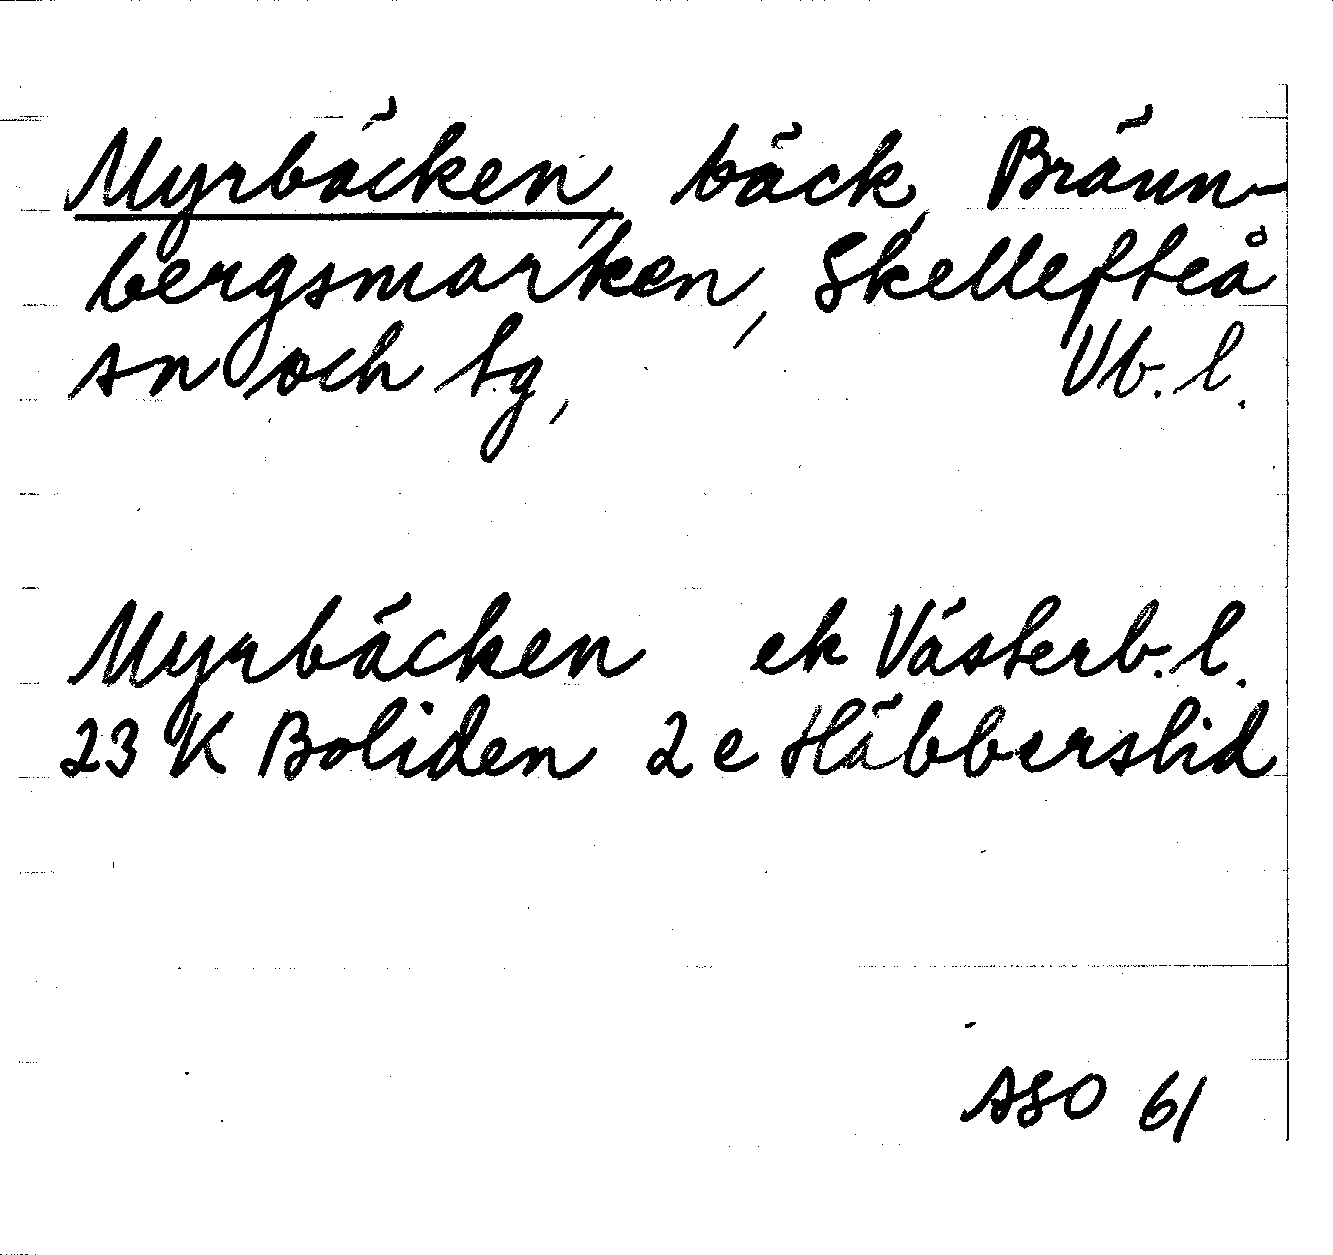 Myrbäcken, bäck, Bränn-
bergsmarken, Skellefteå
sn och tg, Vb. l.
Myrbäcken ek Västerb. l.
23 K Boliden 2 e Häbberslid
ASO 61